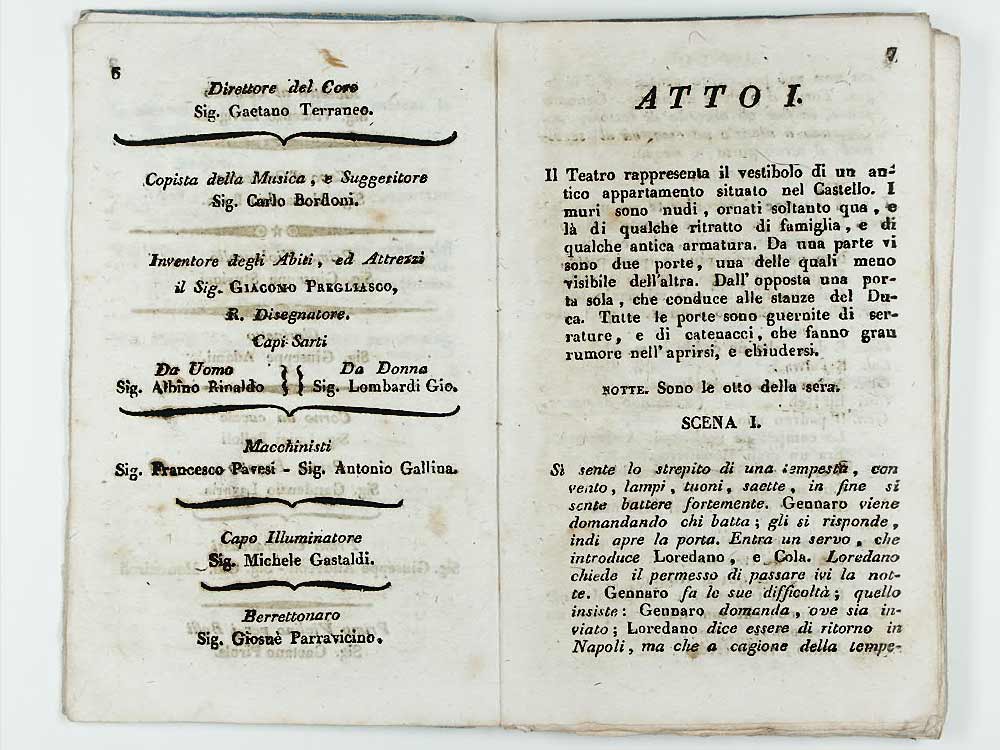 6
Direttore del Coro
Sig. Gaetano Terraneo.
Copista della Musica, e Suggeritore
Sig. Carlo Bordoni.
Inventore degli Abiti, ed Attrezzi
il Sig. GIACOMO PREGLIASCO,
R. Disegnatore.
Capi Sarti
Da Uomo Da Donna
Sig. Albino Rinaldo Sig. Lombardi Gio.
Macchinisti
Sig. Francesco Pavesi - Sig. Antonio Gallina.
Capo Illuminatore
Sig. Michele Gastaldi.
Berrettonaro
Sig. Giosuè Parravicino.
7
ATTO I.
Il Teatro rappresenta il vestibolo di un an-
tico appartamento situato nel Castello. I
muri sono nudi, ornati soltanto qua, e
là di qualche ritratto di famiglia, e di
qualche antica armatura. Da una parte vi
sono due porte, una delle quali meno
visibile dell'altra. Dall'opposta una por-
ta sola, che conduce alle stanze del Du-
ca. Tutte le porte sono guernite di ser-
rature, e di catenacci, che fanno gran
rumore nell'aprirsi, e chiudersi.
NOTTE. Sono le otto della sera.
SCENA I.
Si sente lo strepito di una tempesta, con
vento, lampi, tuoni, saette, in fine si
sente battere fortemente. Gennaro viene
domandando chi batta; gli si risponde,
indi apre la porta. Entra un servo, che
introduce Loredano, e Cola. Loredano
chiede il permesso di passare ivi la not-
te. Gennaro fa le sue difficoltà; quello
insiste: Gennaro domanda, ove sia in-
viato; Loredano dice essere di ritorno in
Napoli, ma che a cagione della tempe-